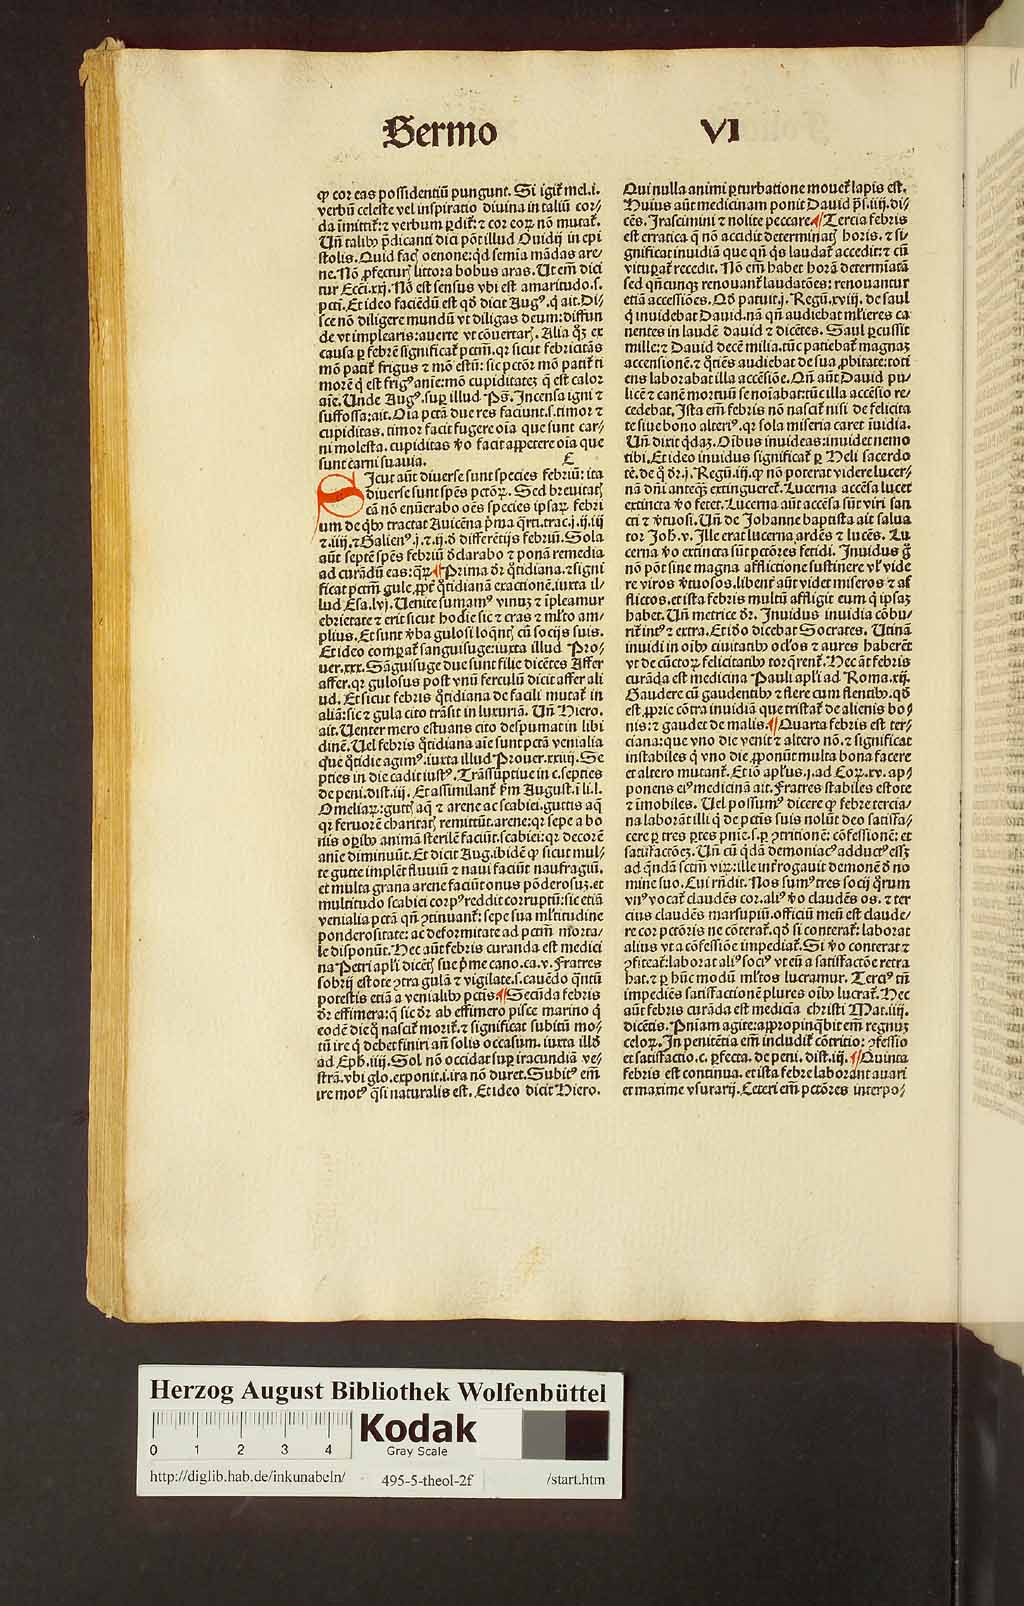 Sermo VI
ꝙ cor eas possidentiū pungunt. Si igit᷑ mel.i.
verbū celeste vel inspiratio diuina in taliū cor/
da īmittit᷑: ⁊ verbum ꝑdit᷑: ⁊ cor eoꝝ nō mutat᷑.
Uñ talibꝰ p̄dicanti dici pōt illud Ouidij in epi
stolis. Quid facꝭ oenone: qd semia mādas are/
ne. Nō ꝓfecturꝭ littora bobus aras. Ut em̄ dici
tur Ecci.xxj. Nō est sensus vbi est amaritudo.s.
pcti. Et ideo faciēdū est qd̄ dicit Augꝰ. q̄ ait. Di/
sce nō diligere mundū vt diligas deum: diffun
de vt implearis: auerte vt cōuertarꝭ. Alia qꝫ ex
causa ꝑ febrē significat᷑ pctm̄. qr sicut febricitās
mō patit᷑ frigus ⁊ mō estū: sic pctōr mō patit᷑ ti
morē q̄ est frigꝰ anie: mō cupiditateꝫ q̄ est calor
aīe. Unde Augꝰ. suꝑ illud Ps̄. Incensa igni ⁊
suffossa: ait. Oīa pctā due res faciunt.s. timor ⁊
cupiditas. timor facit fugere oīa que sunt car/
ni molesta. cupiditas ꝟo facit appetere oīa que
sunt carni suauia. E
SIcut aūt diuerse sunt species febriū: ita
diuerse sunt spēs pctōꝝ. Sed breuitatꝭ
cā nō enūerabo oēs species ipsaꝝ febri
um de qbꝰ tractat Auicēna p̄ma q̄rti. trac.j.ij.iij
⁊.iiij. ⁊ Galienꝰ.j.⁊.ij. d̄ differētijs febriū. Sola
aūt septē spēs febriū d̄clarabo ⁊ ponā remedia
ad curādū eas: qꝝ ¶ Prima d̄r q̄tidiana. ⁊ signi
ficat pctm̄ gule, ꝓpt᷑ q̄tidianā exactionē. iuxta il/
lud Esa.lvj. Uenite sumamꝰ vinuꝫ ⁊ īpleamur
ebrietate ⁊ erit sicut hodie sic ⁊ cras ⁊ ml̄to am/
plius. Et sunt ꝟba gulosi loqntꝭ cū socijs suis.
Et ideo comꝑat᷑ sanguisuge: iuxta illud Pro/
uer.xxx. Sāguisuge due sunt filie dicētes Affer
affer. qr gulosus post vnū ferculū dicit affer ali
ud. Et sicut febris q̄tidiana de facili mutat᷑ in
aliā: sic ⁊ gula cito trāsit in luxuriā. Uñ Hiero.
ait. Uenter mero estuans cito despumat in libi
dinē. Uel febris q̄tidiana aīe sunt pctā venialia
que q̄tidie agimꝰ. iuxta illud Prouer.xxiiij. Se
pties in die cadit iustꝰ. Trāssūptiue in c. septies
de peni. dist.iij. Et assimilant᷑ ꝑm August. ī li.l.
Omeliaꝝ: guttꝭ aq̄ ⁊ arene ac scabiei. guttis aq̄
qr feruorē charitatꝭ remittūt. arene: qr sepe a bo
nis opibꝰ animā sterilē faciūt. scabiei: qr decorē
anie diminuūt. Et dicit Aug. ibidē ꝙ sicut mul/
te gutte implēt fluuiū ⁊ naui faciūt naufragiū.
et multa grana arene faciūt onus pōderosuꝫ. et
multitudo scabiei corpꝰ reddit corruptū: sic etiā
venialia pctā qñ ↄtinuant᷑: sepe sua ml̄titudine
ponderositate: ac deformitate ad pctm̄ morta/
le disponūt. Hec aūt febris curanda est medici
na Petri apl̄i dicētꝭ sue p̄me cano.ca.v. Fratres
sobrij estote ↄtra gulā ⁊ vigilate.s. cauēdo q̄ntū
potestis etiā a venialibꝰ pctis. ¶ Secūda febris
d̄r effimera: q̄ sic d̄r ab effimero pisce marino q̄
eodē die q̄ nascit᷑ morit᷑. ⁊ significat subitū mo/
tū ire q̄ debet finiri añ solis occasum. iuxta illd̄
ad Eph.iiij. Sol nō occidat suꝑ iracundiā ve/
strā. vbi glo. exponit.i. ira nō duret. Subitꝰ em̄
ire motꝰ q̄si naturalis est. Et ideo dicit Hiero.
Qui nulla animi ꝑturbatione mouet᷑ lapis est.
Huius aūt medicinam ponit Dauid ps̄.iiij. di/
cēs. Irascimini ⁊ nolite peccare ¶ Tercia febris
est erratica q̄ nō accidit determinatꝭ horis. ⁊ si/
gnificat inuidiā que qñ q̄s laudat᷑ accedit: ⁊ cū
vituꝑat᷑ recedit. Nō em̄ habet horā determīatā
sed qñcunqꝫ renouant᷑ laudatōes: renouantur
etiā accessiōes. Qd̄ patuit.j. Regū.xviij. de saul
q̄ inuidebat Dauid. nā qñ audiebat ml̄ieres ca
nentes in laudē dauid ⁊ dicētes. Saul ꝑcussit
mille: ⁊ Dauid decē milia. tūc patiebat᷑ magnaꝫ
accensionē. ⁊ q̄tiēs audiebat de sua ꝓbitate: toti
ens laborabat illa accēsiōe. Qñ aūt Dauid pu/
licē ⁊ canē mortuū se noīabat: tūc illa accēsio re/
cedebat. Ista em̄ febris nō nascit᷑ nisi de felicita
te siue bono alteriꝰ. qr sola miseria caret īuidia.
Uñ dixit q̄daꝫ. Oībus inuideas: inuidet nemo
tibi. Et ideo inuidus significat᷑ ꝑ Heli sacerdo
tē. de q̄ d̄r.j. Regū.iij. ꝙ nō poterat videre lucer/
nā dn̄i anteqꝫ extingueret᷑. Lucerna accēsa lucet
extincta ꝟo fetet. Lucerna aūt accēsa sūt viri san
cti ⁊ ꝟtuosi. Uñ de Johanne baptista ait salua
tor Joh.v. Ille erat lucerna ardēs ⁊ lucēs. Lu
cerna ꝟo extincta sūt pctōres fetidi. Inuidus g̊
nō pōt sine magna afflictione sustinere vl̓ vide
re viros ꝟtuosos. libent᷑ aūt videt miseros ⁊ af
flictos. et ista febris multū affligit eum q̄ ipsaꝫ
habet. Uñ metrice d̄r. Inuidus inuidia cōbu/
rit᷑ intꝰ ⁊ extra. Et iđo dicebat Socrates. Utinā
inuidi in oībꝰ ciuitatibꝰ ocl̓os ⁊ aures haberēt
vt de cūctoꝝ felicitatibꝰ torq̄rent᷑. Hec āt febris
curāda est medicina Pauli apl̄i ad Roma.xij.
Gaudere cū gaudentibꝰ ⁊ flere cum flentibꝰ. qd̄
est ꝓprie cōtra inuidiā que tristat᷑ de alienis bo/
nis: ⁊ gaudet de malis. ¶ Quarta febris est ter/
ciana: que vno die venit ⁊ altero nō. ⁊ significat
instabiles q̄ vno die ꝓponūt multa bona facere
et altero mutant᷑. Et iō apl̓us.j. ad Coꝝ.xv. ap/
ponens eiꝰ medicinā ait. Fratres stabiles estote
⁊ īmobiles. Uel possumꝰ dicere ꝙ febre tercia/
na laborāt illi q̄ de pctis suis nolūt deo satisfa/
cere ꝑ tres ꝑtes pnīe.s. ꝑ ↄtritionē: cōfessionē: et
satisfactōeꝫ. Uñ cū q̄dā demoniacꝰ adductꝰ essꝫ
ad q̄ndā sctm̄ viꝝ: ille int᷑rogauit demonē d̄ no
mine suo. Cui rn̄dit. Nos sumꝰ tres socij q̄rum
vnꝰ vocat᷑ claudēs cor. aliꝰ ꝟo claudēs os. ⁊ ter
cius claudēs marsupiū. officiū meū est claude/
re cor pctōris ne cōterat᷑. qd̓ si conterat᷑: laborat
alius vt a cōfessiōe impediat᷑. Si ꝟo conterat᷑ ⁊
ↄfiteat᷑: laborat aliꝰ sociꝰ vt eū a satisfactōe retra
hat. ⁊ ꝑ hūc modū ml̄tos lucramur. Terciꝰ tn̄
impediēs satisfactionē plures oībꝰ lucrat᷑. Hec
aūt febris curāda est medicīa christi Mat.iiij.
dicētis. Pniam agite: appropinq̄bit em̄ regnuꝫ
celoꝝ. In penitētia em̄ includit᷑ cōtritio: ↄfessio
et satisfactio. c. ꝑfecta. de peni. dist.iij. ¶ Quinta
febris est continua. et ista febre laborant auari
et maxime vsurarij. Ceteri em̄ pctōres interpo/
Herzog August Bibliothek Wolfenbüttel
0 1 2 3 4
Kodak
Gray Scale
http://diglib.hab.de/inkunabeln/ 495-5-theol-2f /start.htm